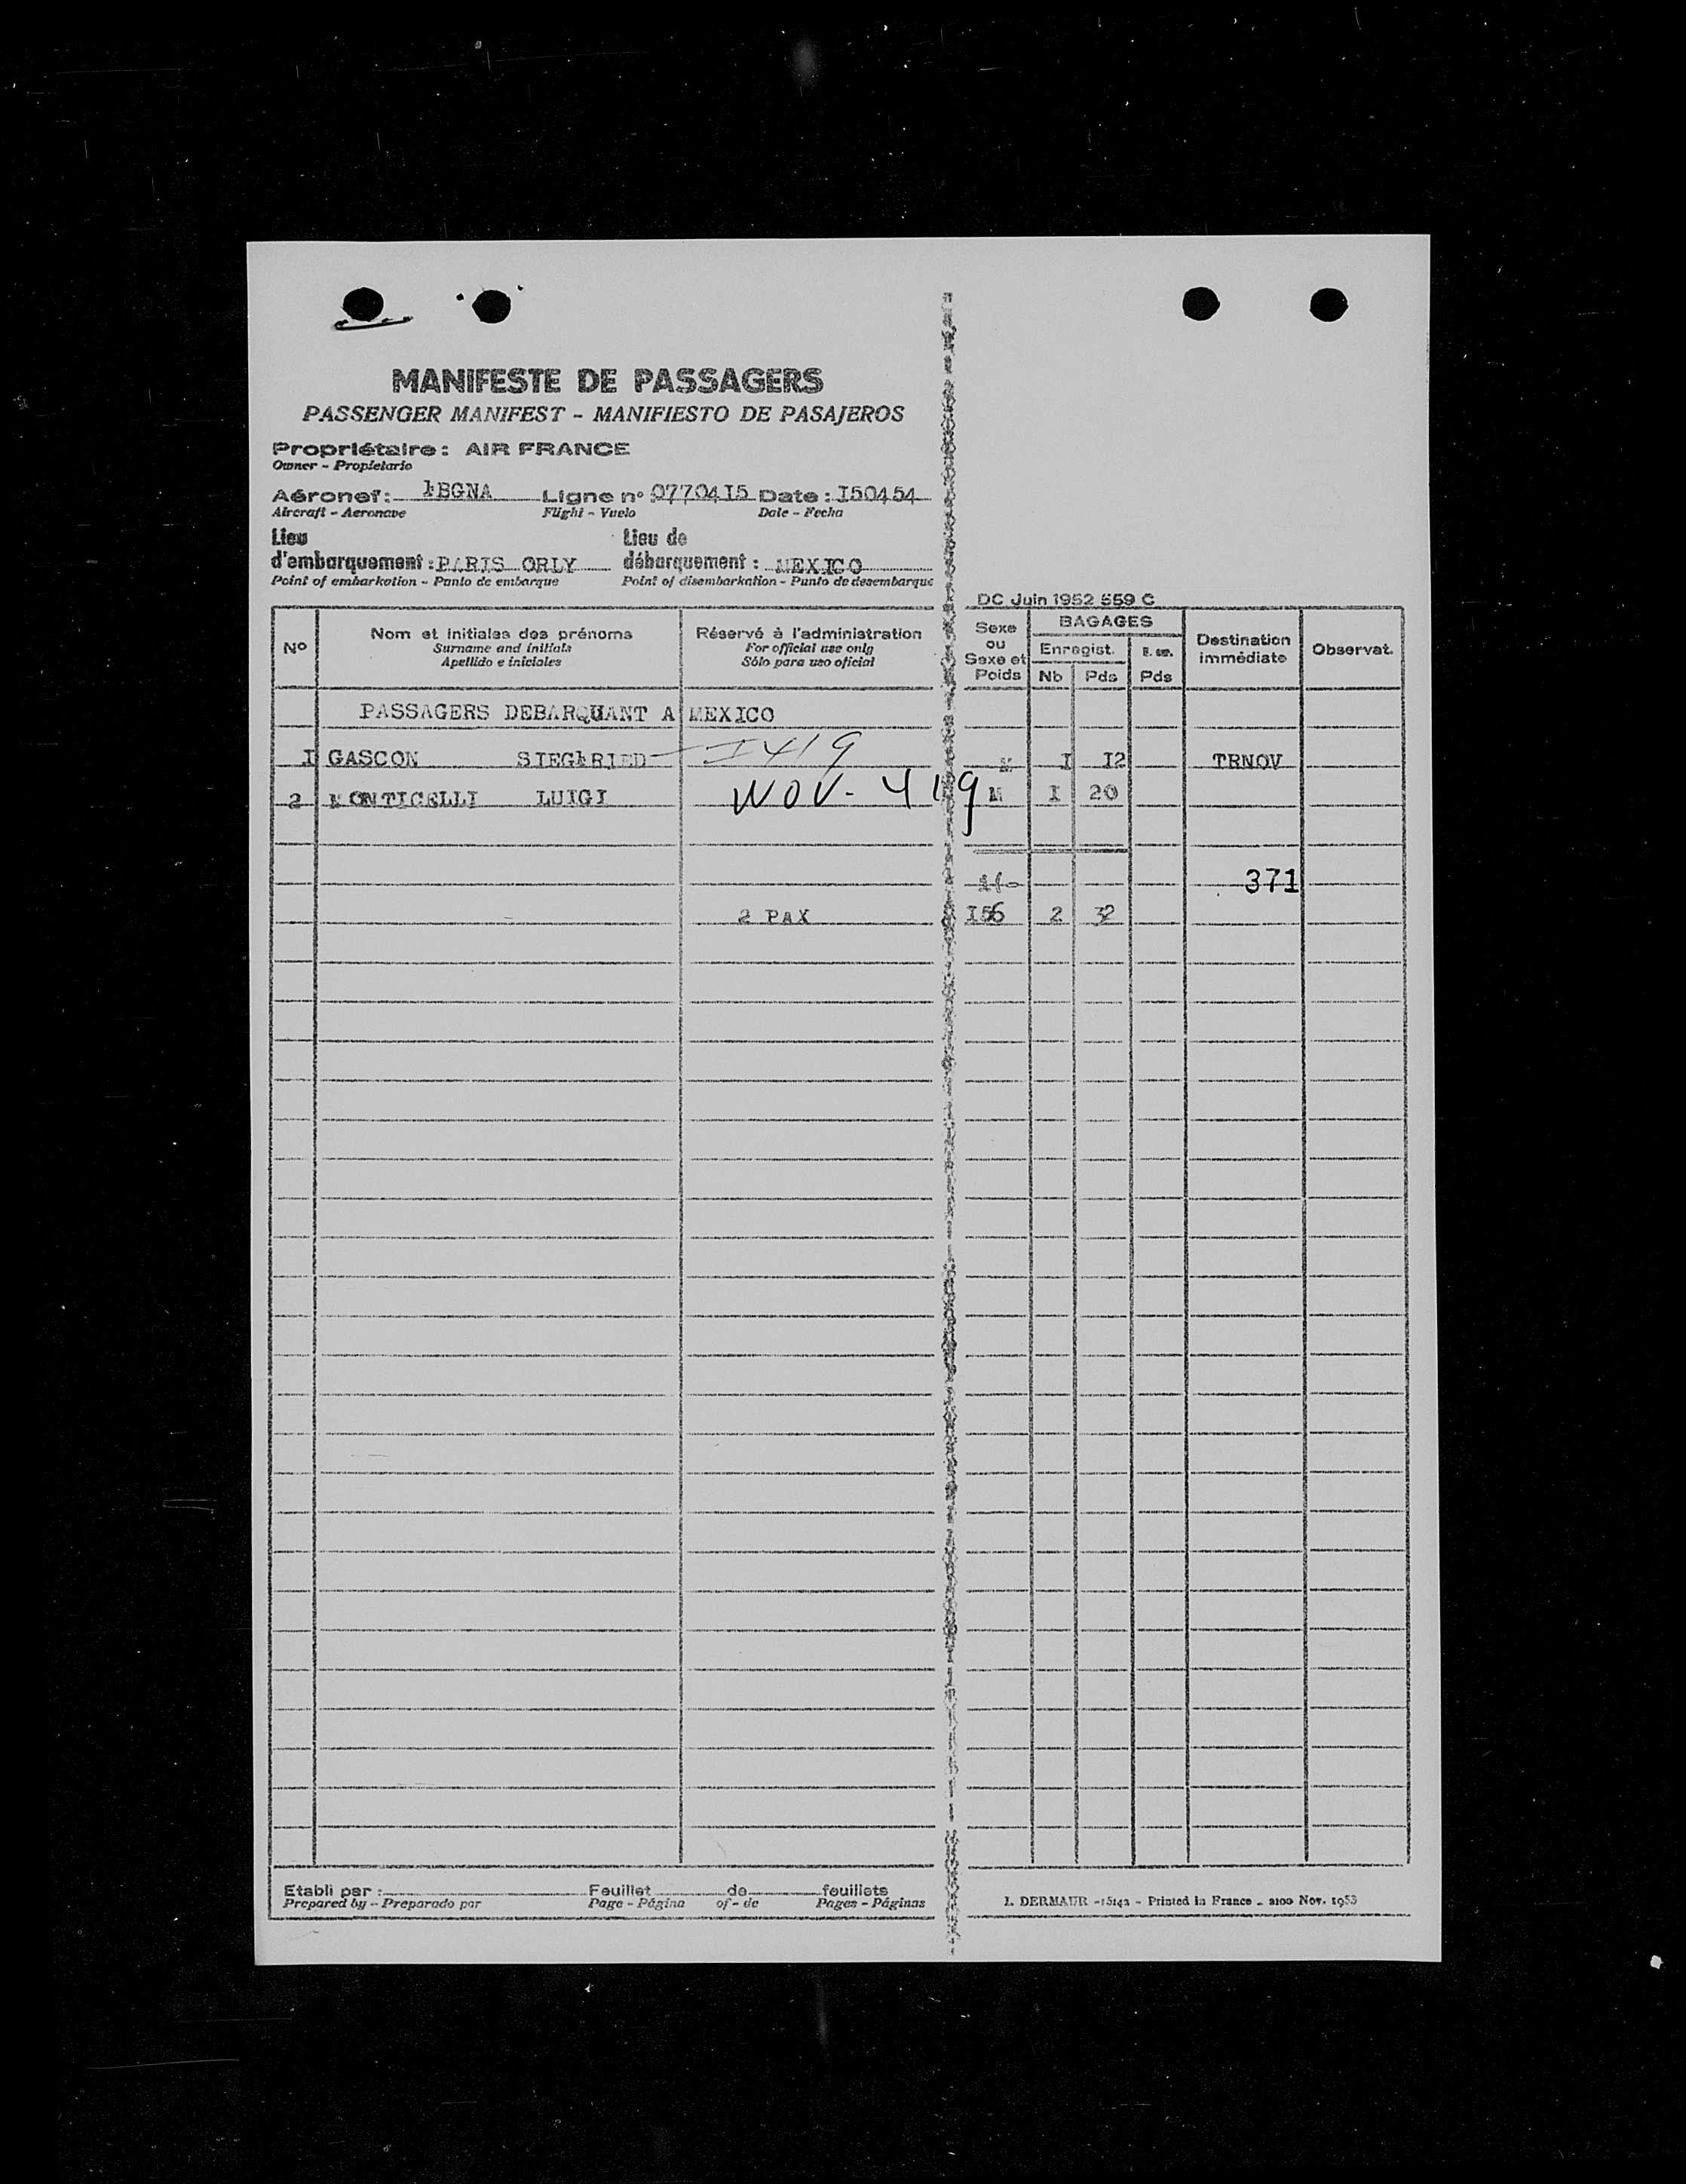 MANIFESTE DE PASSAGERS
PASSENGER MANIFEST - MANIFIESTO DE PASAJEROS
Propriétaire : AIR FRANCE
Owner - Propietario
Aéronef : FBGNA Ligne n° 0770415 Date : I50454
Aircraft - Aeronave Flight - Vuelo Date - Fecha
Lieu d'embarquement : PARIS ORLY Lieu de débarquement : MEXICO
Point of embarkation - Punto de embarque Point of disembarkation - Punto de desembarque
DC Juin 1952 559 C
N° Nom et initiales des prénoms Réservé à l'administration Sexe ou Sexe et Poids BAGAGES Destination immédiate Observat.
Surname and initials For official use only Enregist.
Apellido e iniciales Sólo para uso oficial Nb Pds Pds
PASSAGERS DEBARQUANT A MEXICO
I GASCON SIEGFRIED I 419 M I I2 TRNOV
2 MONTICELLI LUIGI NOV - 419 M I 20
371
2 PAX I56 2 32
Etabli par : Feuillet de feuillets
Prepared by - Preparado por Page - Página of - de Pages - Páginas
I. DERMAUR - 15142 - Printed in France - 2100 Nov. 1953